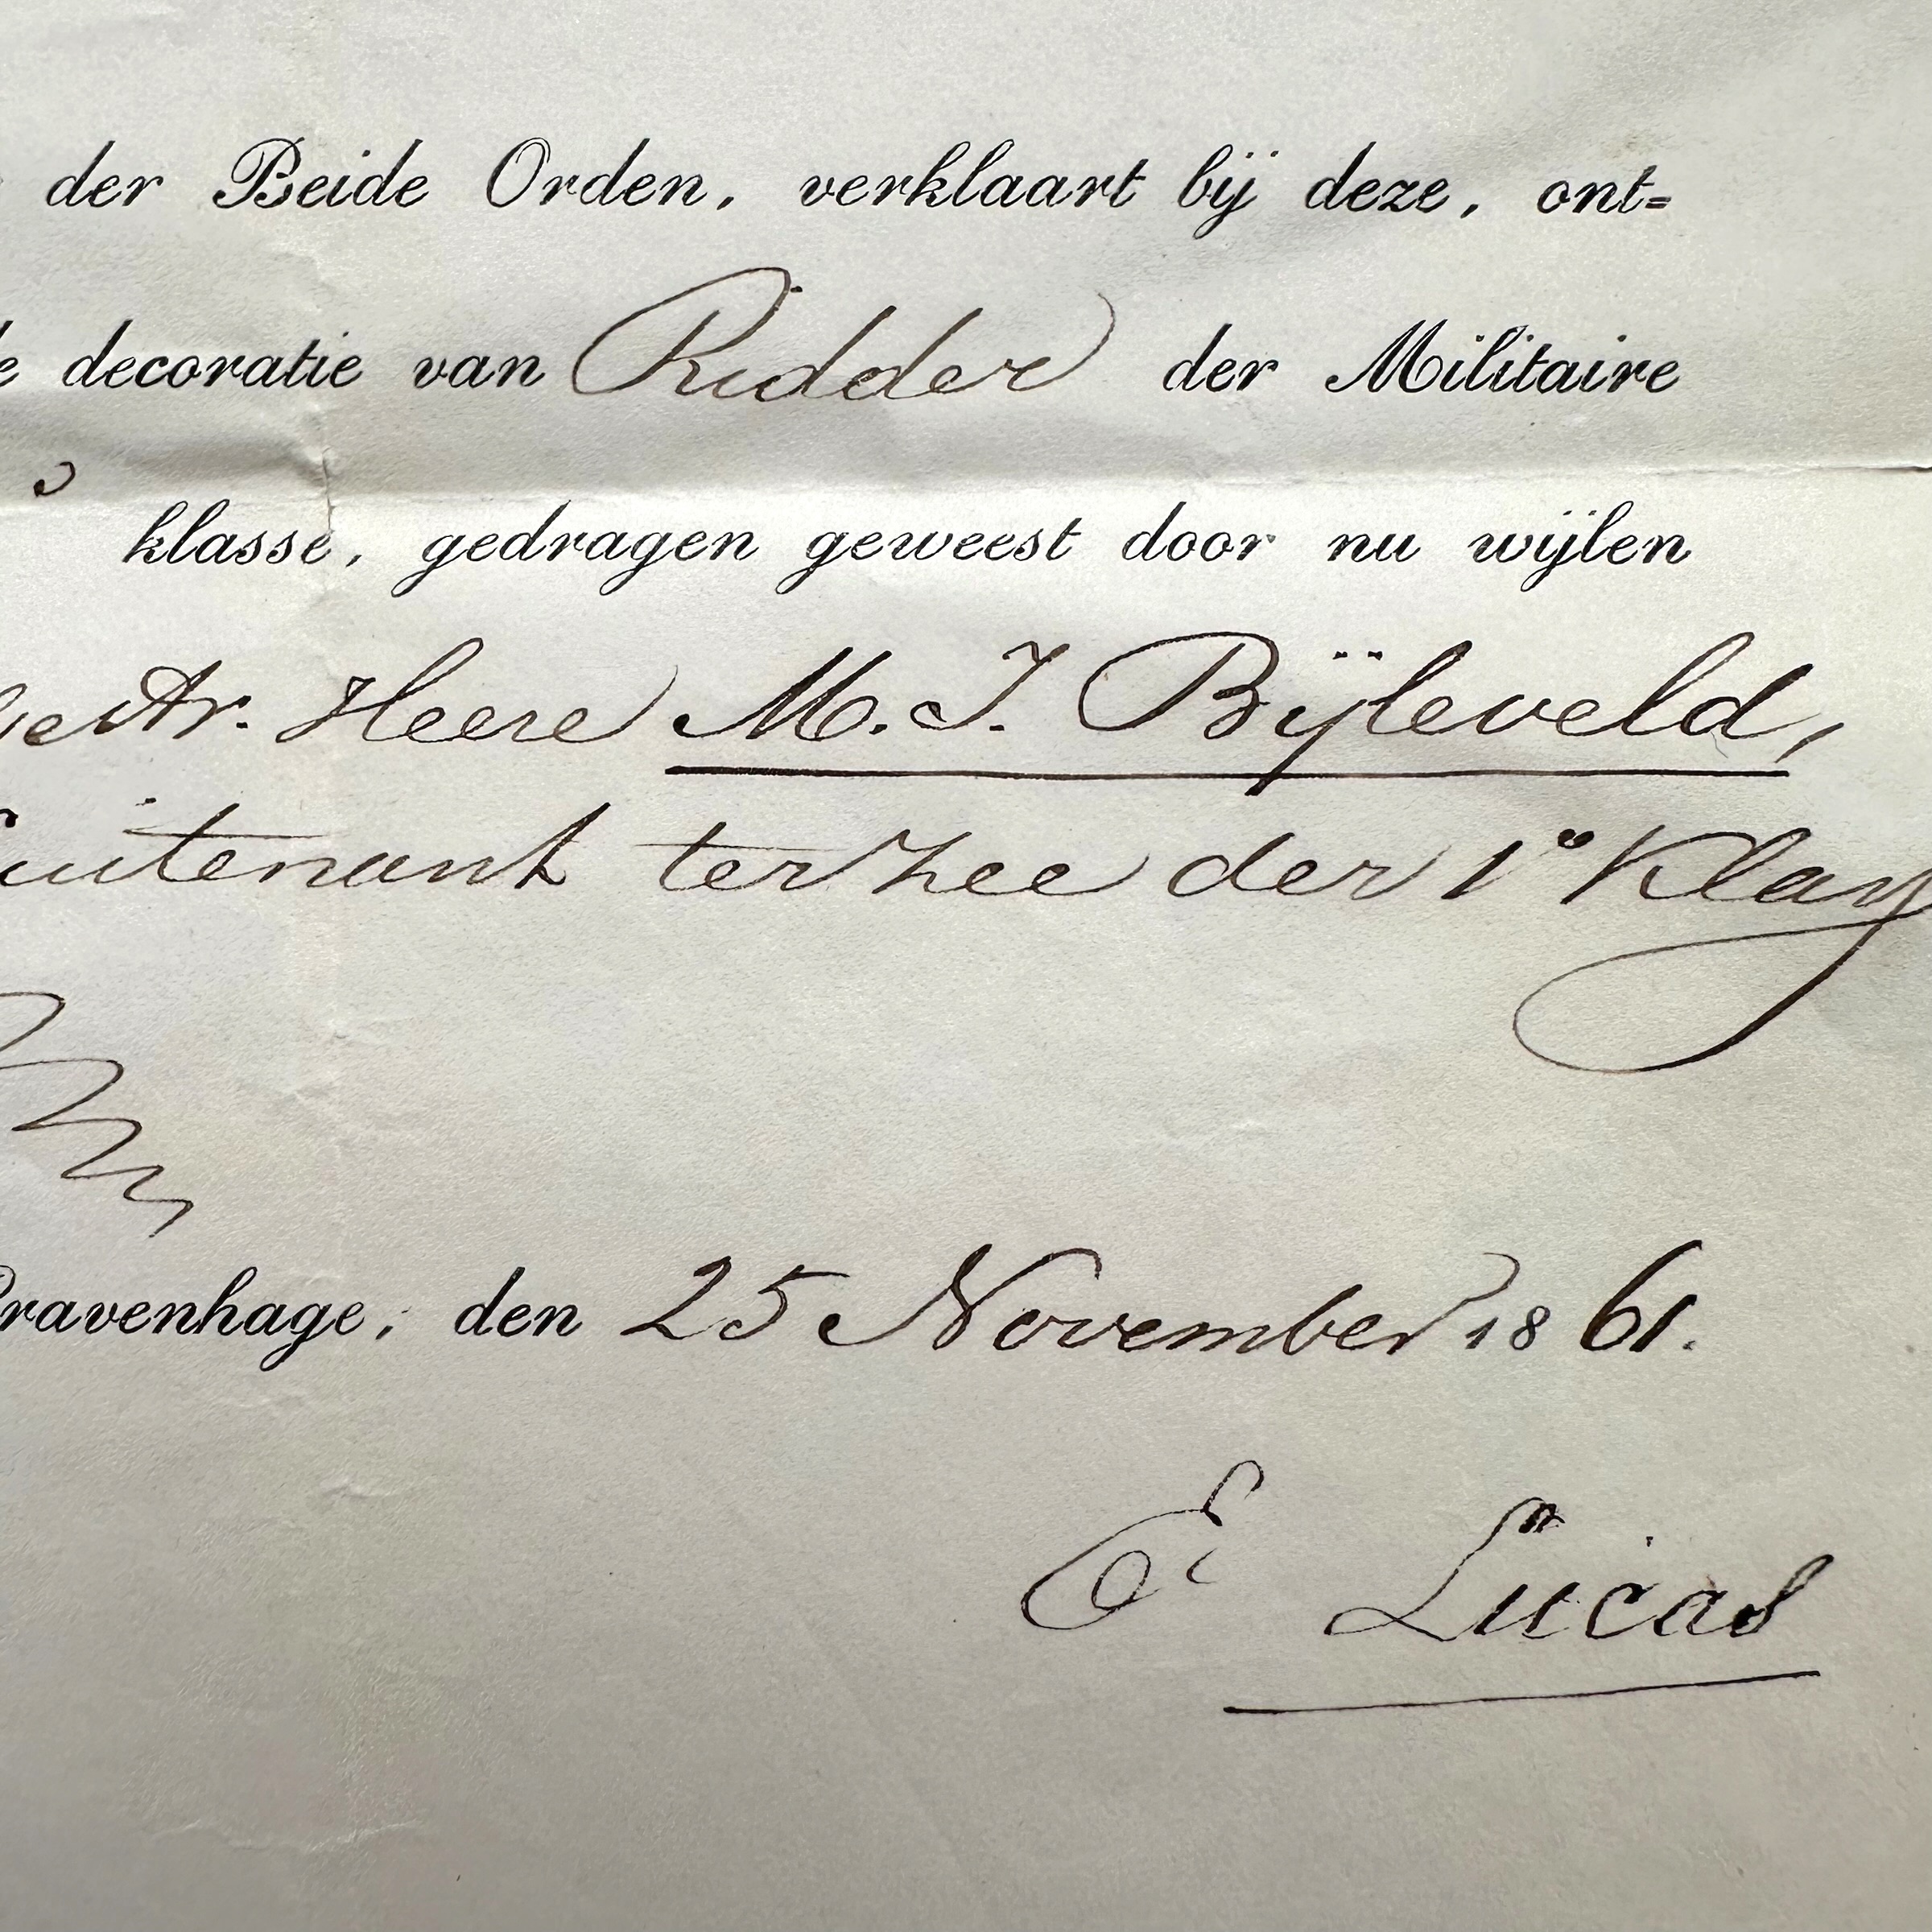 der Beide Orden, verklaart bij deze, ont=
decoratie van Ridder der Militaire
klasse, gedragen geweest door nu wijlen
Heere M. J. Bijleveld,
uitenant ter Zee der 1e Klasse
Gravenhage, den 25 November 1861.
E Lucas